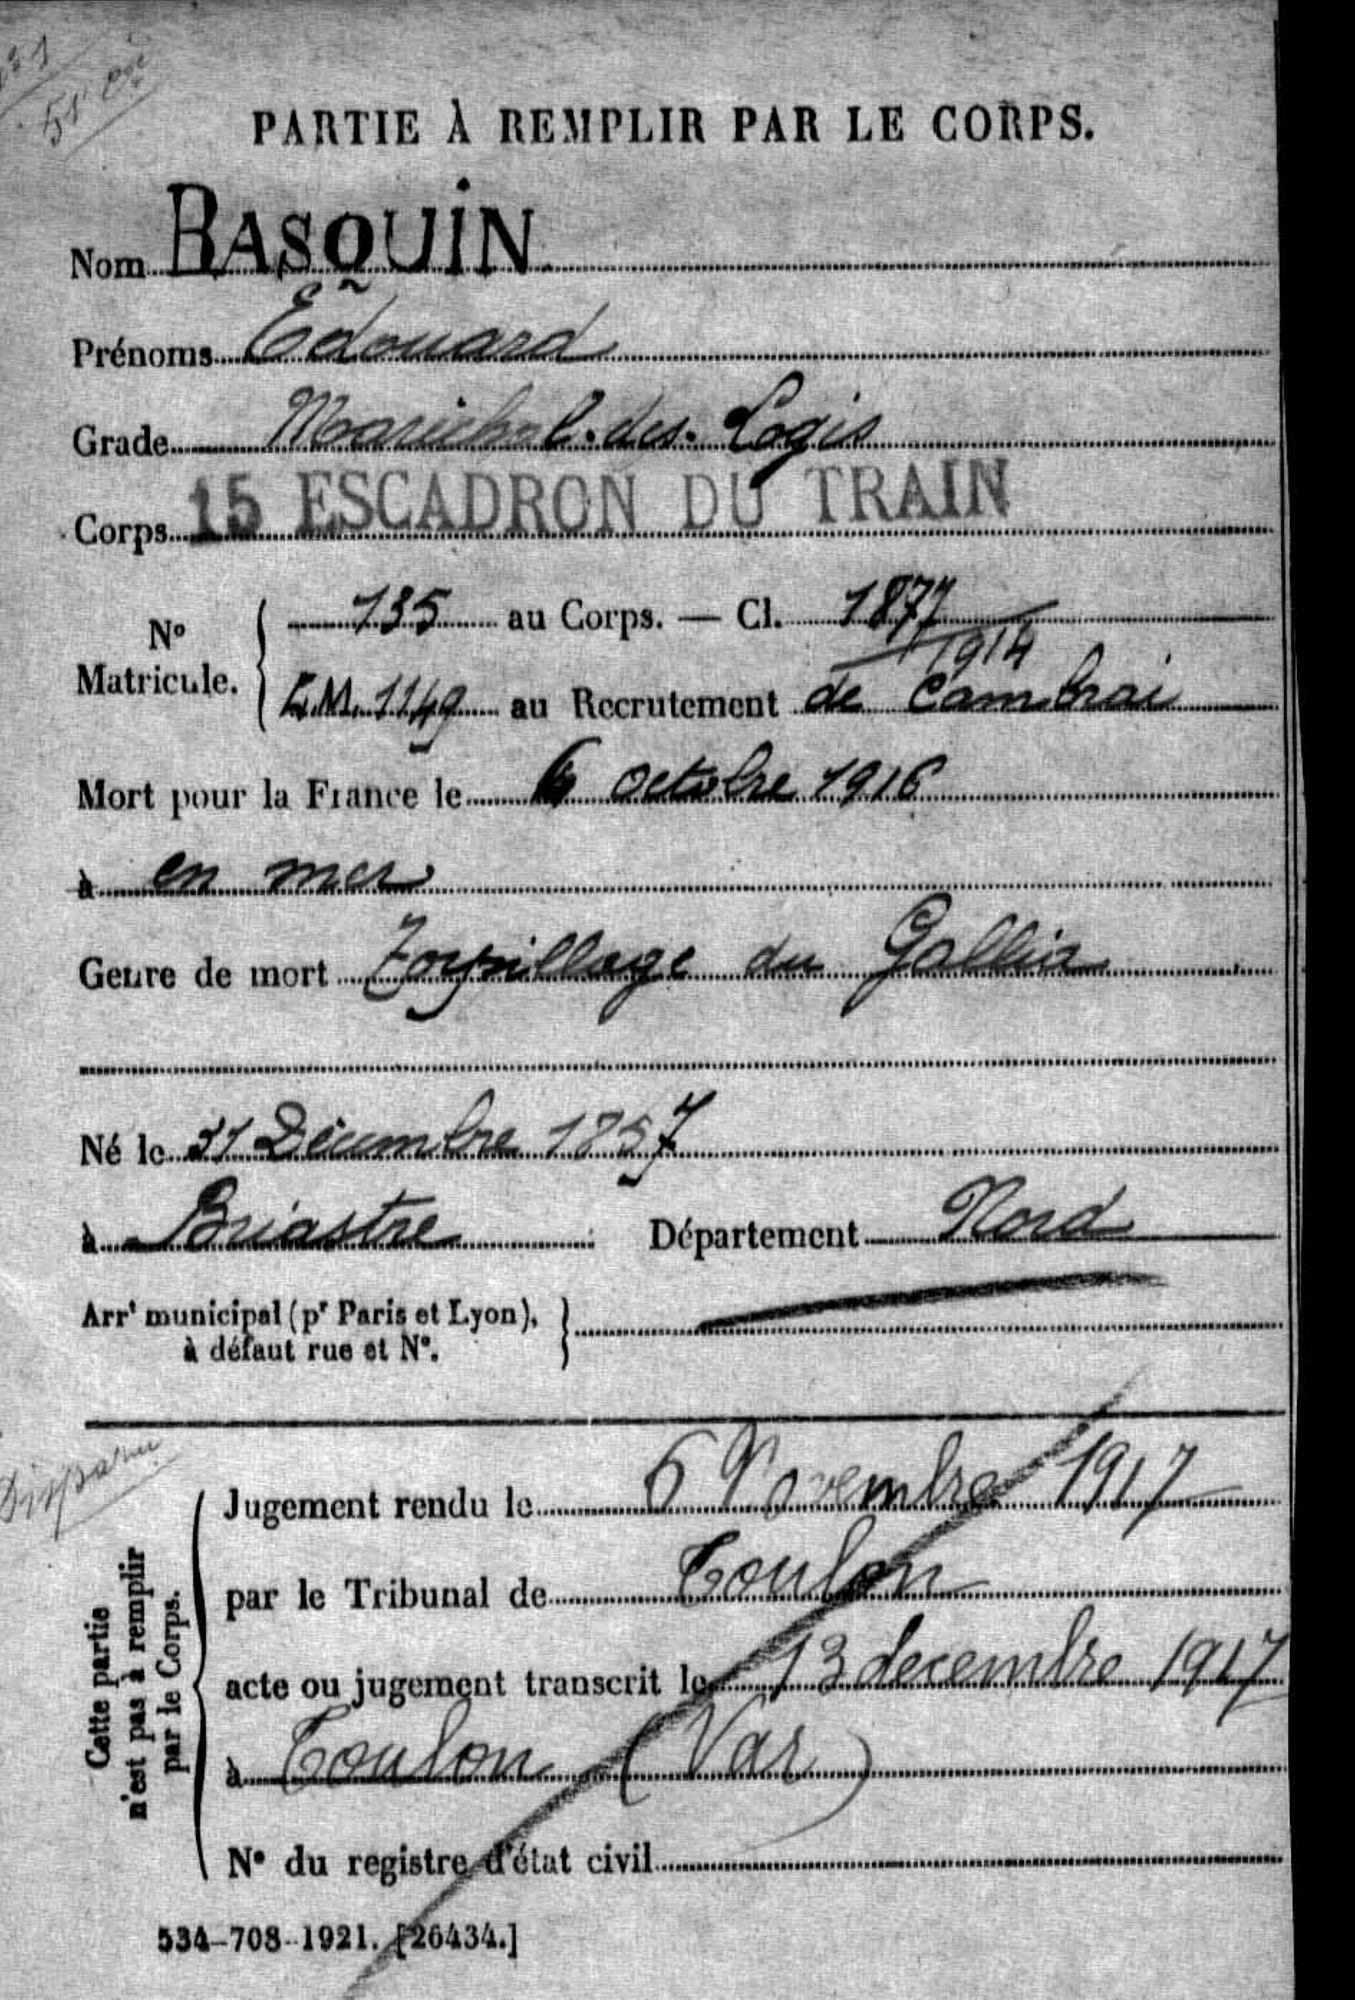 51e Cie
PARTIE À REMPLIR PAR LE CORPS.
Nom BASQUIN
Prénoms Edouard
Grade Maréchal. des. Logis
Corps 15 ESCADRON DU TRAIN
No Matricule. 135 au Corps. — Cl. 1877
1914
E.M. 1149 au Recrutement de Cambrai
Mort pour la France le 4 octobre 1916
à en mer
Genre de mort Torpillage du Gallia
Né le 31 Décembre 1857
à Briastre Département Nord
Arrt municipal (pr Paris et Lyon),
à défaut rue et No.
Disparu
Cette partie
n'est pas à remplir
par le Corps.
Jugement rendu le 6 Novembre 1917
par le Tribunal de Toulon
acte ou jugement transcrit le 13 decembre 1917
à Toulon (Var)
No du registre d'état civil
534-708-1921. [26434.]